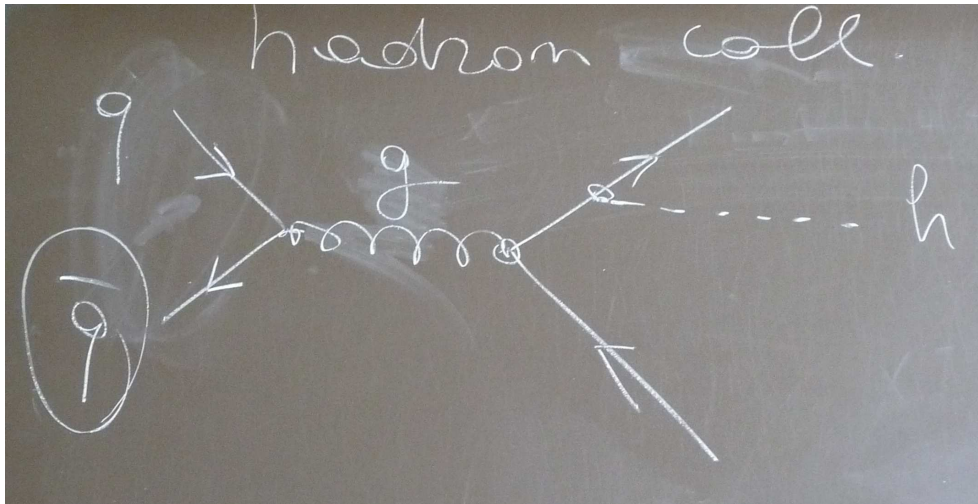 hadron coll.
q
g
h
q̄